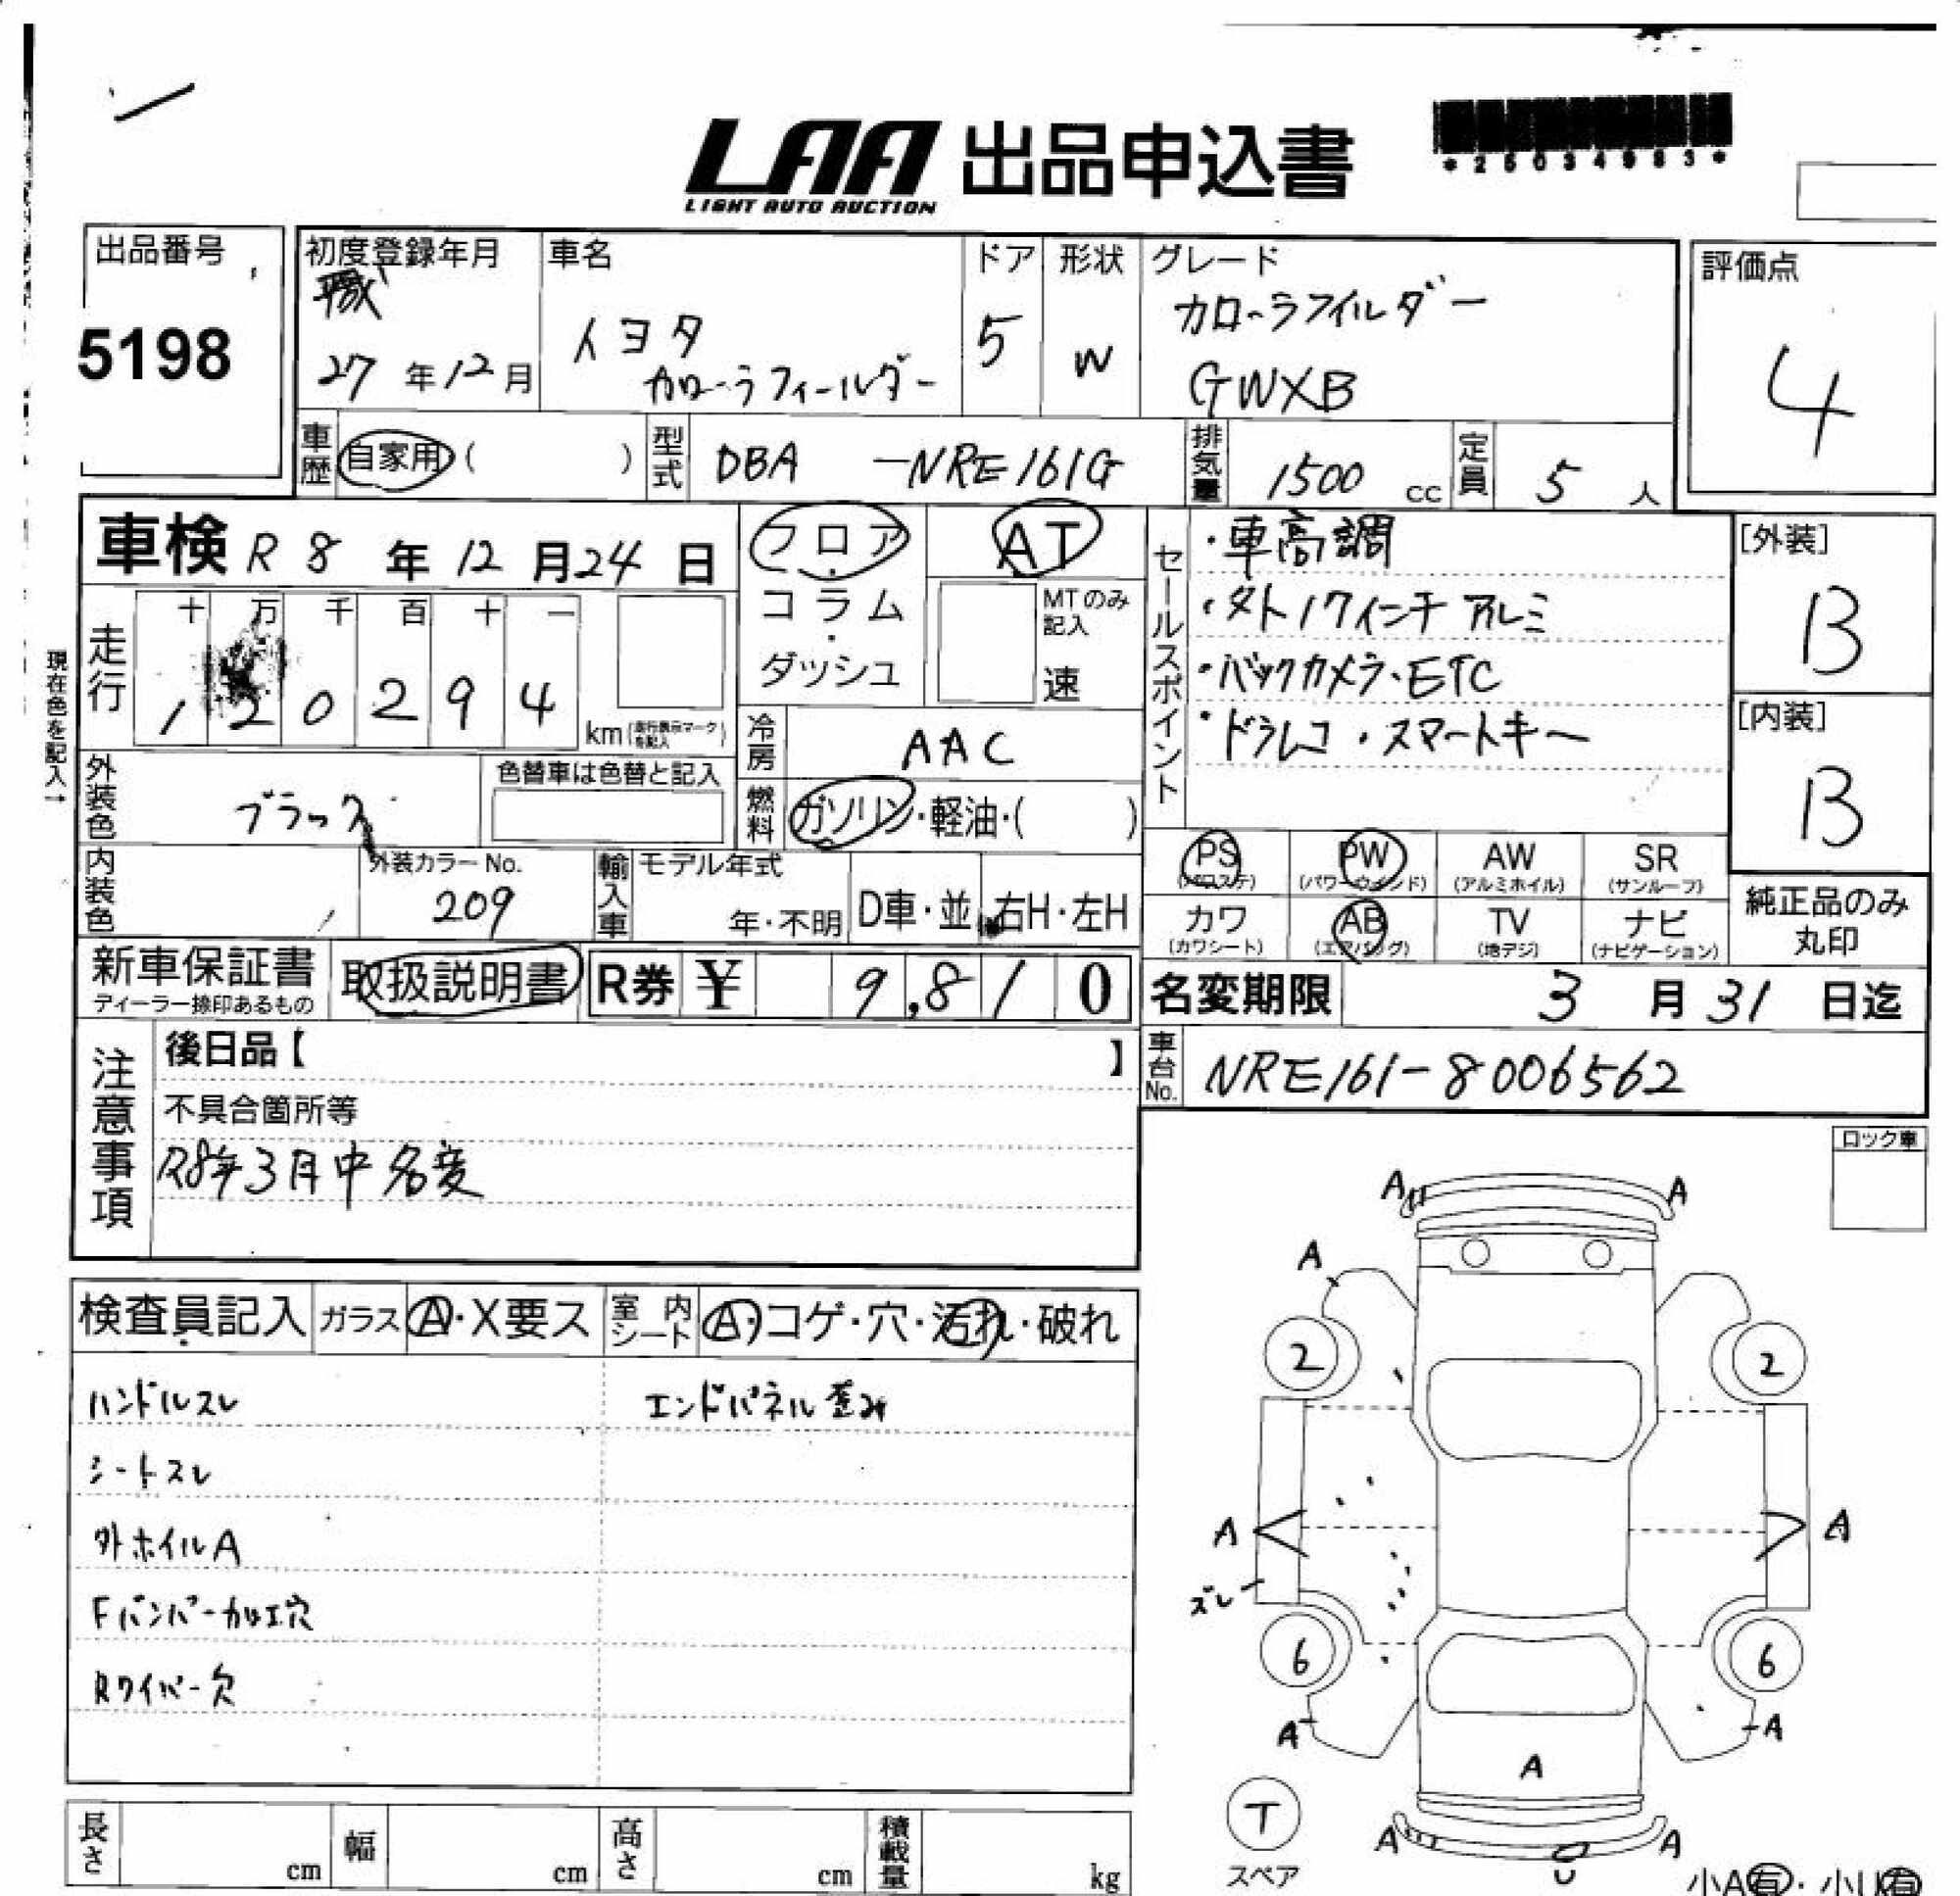 LAA 出品申込書
LIGHT AUTO AUCTION
*25034983*
出品番号
5198
初度登録年月
平成
27年12月
車名
トヨタ
カローラフィールダー
ドア
5
形状
W
グレード
カローラフィルダー
GWXB
評価点
4
車歴 自家用( )
型式 DBA -NRE161G
排気量 1500 cc
定員 5 人
車検 R8年12月24日
フロア・コラム・ダッシュ
AT
MTのみ記入
速
現在色を記入→
走行
十 万 千 百 十 一
1 2 0 2 9 4
km(走行表示マークを記入)
冷房 AAC
燃料 ガソリン・軽油・( )
セールスポイント
・車高調
・外17インチアルミ
・バックカメラ・ETC
・ドラレコ・スマートキー
[外装]
B
[内装]
B
外装色 ブラック
色替車は色替と記入
内装色
外装カラーNo.
209
輸入車
モデル年式
年・不明
D車・並
右H・左H
PS (パワステ)
PW (パワーウインド)
AW (アルミホイル)
SR (サンルーフ)
カワ (カワシート)
AB (エアバッグ)
TV (地デジ)
ナビ (ナビゲーション)
純正品のみ丸印
新車保証書
ディーラー捺印あるもの
取扱説明書
R券 ¥ 9,810
名変期限 3月31日迄
車台No. NRE161-8006562
注意事項
後日品【 】
不具合箇所等
R8年3月中名変
ロック車
検査員記入
ガラス A・X要ス
室内シート A・コゲ・穴・汚れ・破れ
ハンドルスレ
エンドパネル歪み
シートスレ
外ホイルA
Fバンパー加工穴
Rワイパー欠
A A
A
2 2
A A
ズレ
6 6
A A
A
T
スペア
A A
U
小A有・小U有
長さ cm
幅 cm
高さ cm
積載量 kg